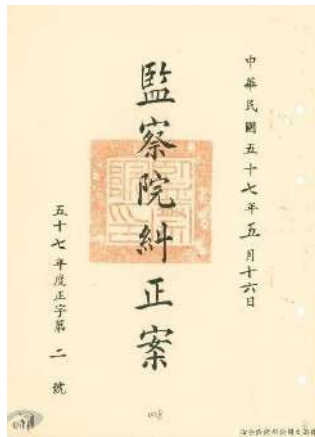 中華民國五十七年五月十六日
監察院糾正案
五十七年度正字第二號
008